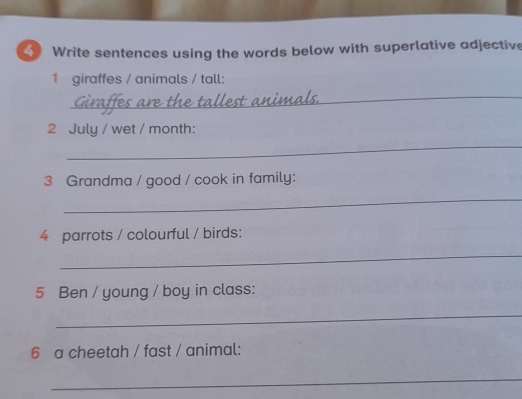 4 Write sentences using the words below with superlative adjective
1 giraffes / animals / tall:
Giraffes are the tallest animals.
2 July / wet / month:
3 Grandma / good / cook in family:
4 parrots / colourful / birds:
5 Ben / young / boy in class:
6 a cheetah / fast / animal: